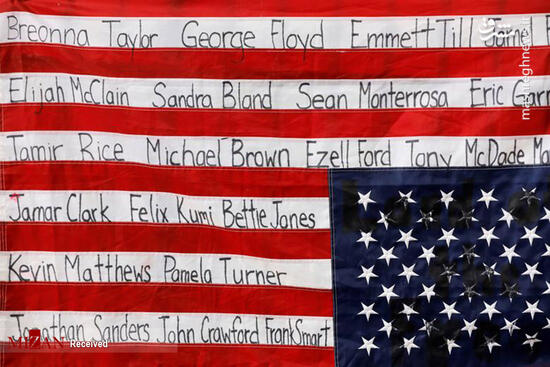 Breonna Taylor George Floyd Emmett Till
Elijah McClain Sandra Bland Sean Monterrosa Eric Garn
Tamir Rice Michael Brown Ezell Ford Tony McDade Ma
Jamar Clark Felix Kumi Bettie Jones
Kevin Matthews Pamela Turner
Jonathan Sanders John Crawford Frank Smart
mashreghnews.ir
MIZAN Received